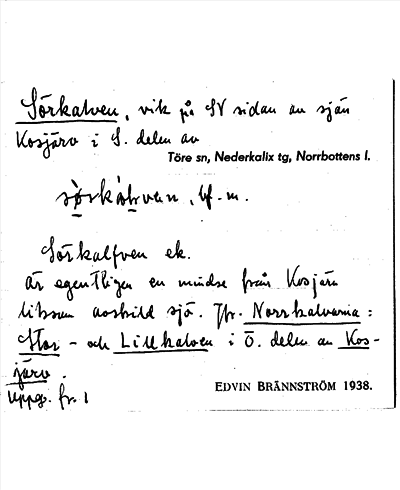 Sörkalven, vik på SV sidan av sjön
Kosjärv i S. delen av
Töre sn, Nederkalix tg, Norrbottens l.
bf. m.
Sörkalfven ek.
Är egentligen en mindre från Kosjärv
liksom avskild sjö. Jfr. Norrkalvarna:
Stor- och Lillkalven i Ö. delen av Kos-
järv.
EDVIN BRÄNNSTRÖM 1938.
Uppg. fr. 1